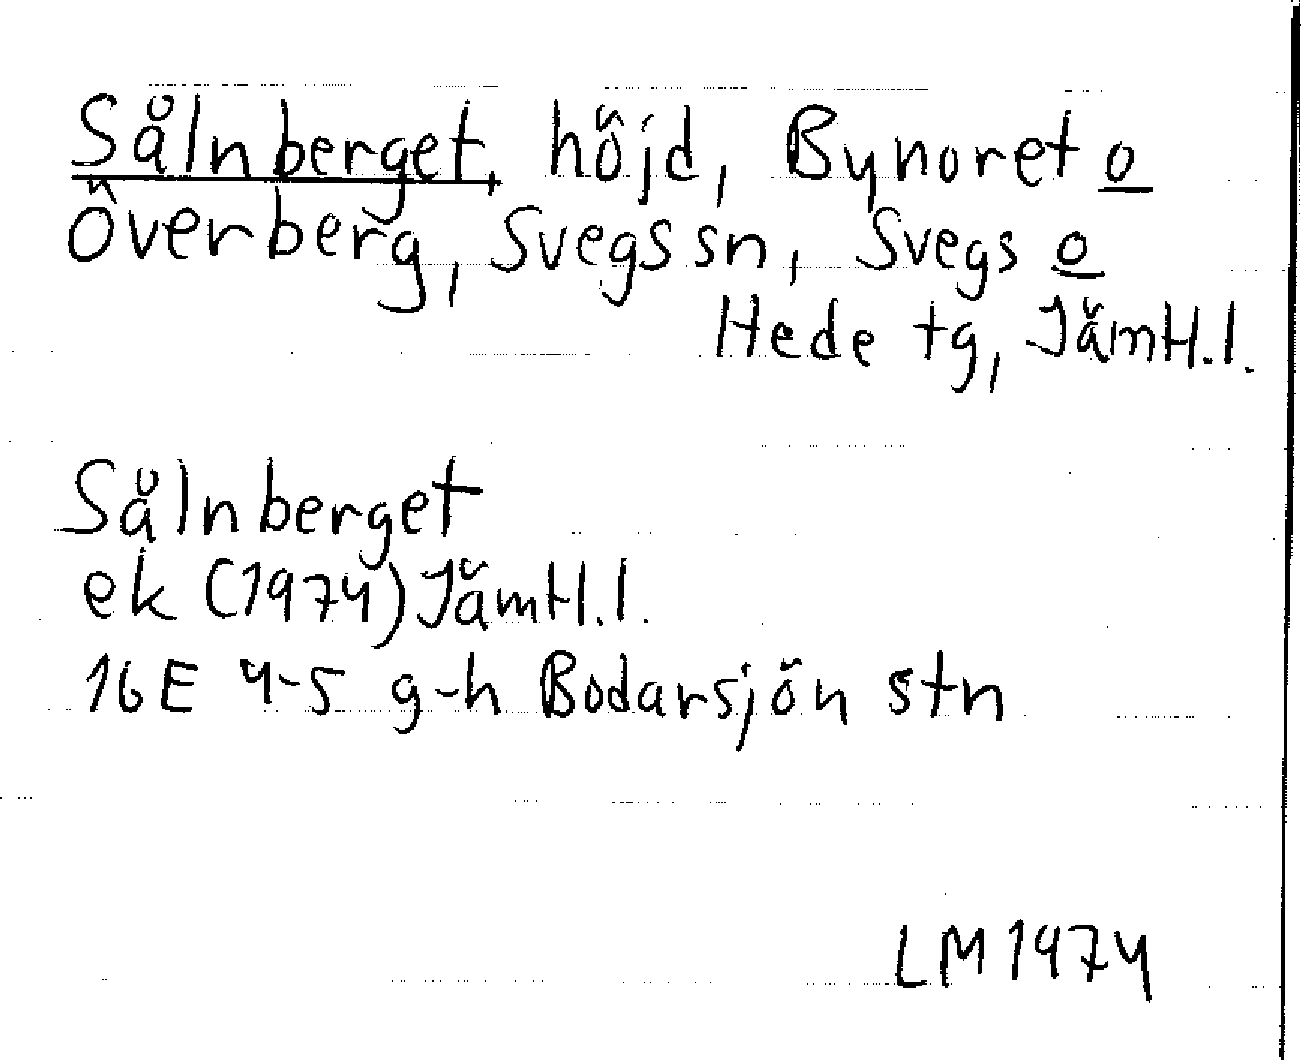 Sålnberget, höjd, Bynoret o
Överberg, Svegs sn, Svegs o
Hede tg, Jämtl.l.
Sålnberget
ek (1974) Jämtl.l.
16E 4-5 g-h Bodarsjön stn
LM 1974